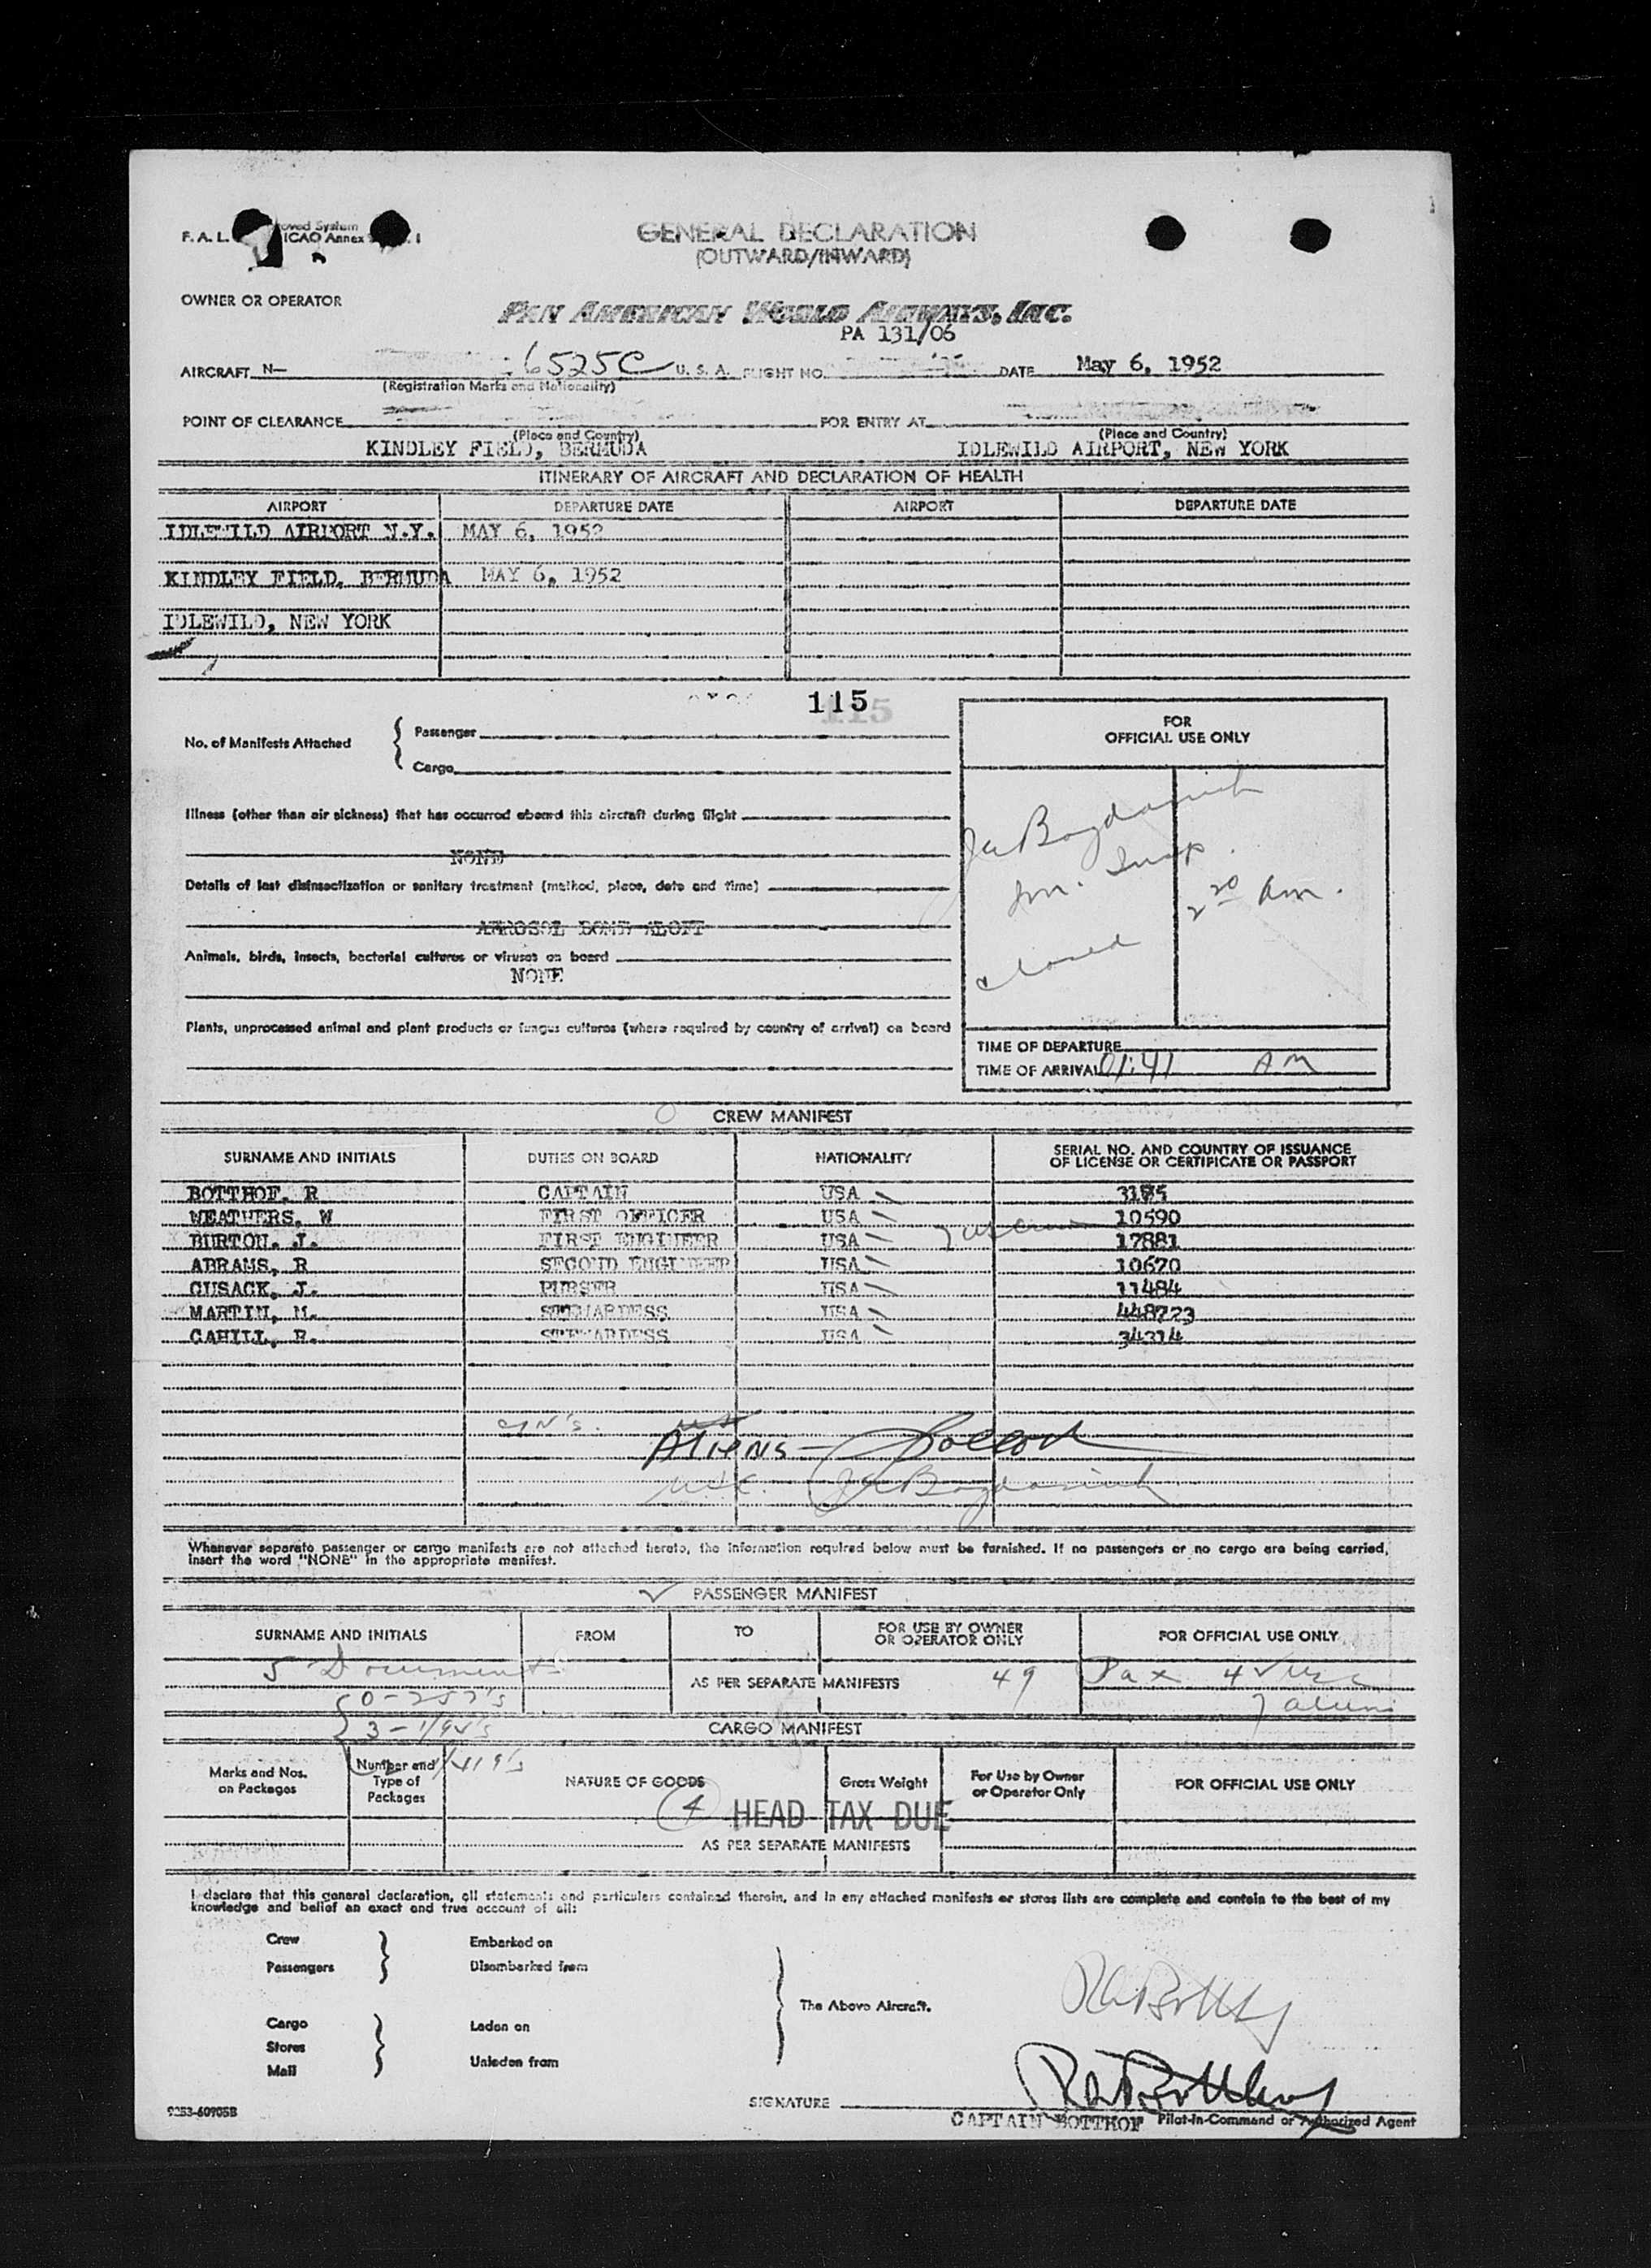 F. A. L.
ICAO Annex
GENERAL DECLARATION
(OUTWARD/INWARD)
OWNER OR OPERATOR
PAN AMERICAN WORLD AIRWAYS, INC.
PA 131/06
AIRCRAFT N— 6525C U. S. A. FLIGHT NO. DATE May 6, 1952
(Registration Marks and Nationality)
POINT OF CLEARANCE FOR ENTRY AT
(Place and Country) (Place and Country)
KINDLEY FIELD, BERMUDA IDLEWILD AIRPORT, NEW YORK
ITINERARY OF AIRCRAFT AND DECLARATION OF HEALTH
AIRPORT DEPARTURE DATE AIRPORT DEPARTURE DATE
IDLEWILD AIRPORT N.Y. MAY 6, 1952
KINDLEY FIELD, BERMUDA MAY 6, 1952
IDLEWILD, NEW YORK
115
No. of Manifests Attached
Passenger
Cargo
FOR
OFFICIAL USE ONLY
Illness (other than air sickness) that has occurred aboard this aircraft during flight
NONE
Details of last disinsectization or sanitary treatment (method, place, date and time)
AEROSOL BOMB ALOFT
Animals, birds, insects, bacterial cultures or viruses on board
NONE
Plants, unprocessed animal and plant products or fungus cultures (where required by country of arrival) on board
Imm. Insp.
2 20 Am.
closed
TIME OF DEPARTURE
TIME OF ARRIVAL 01:41 AM
CREW MANIFEST
SURNAME AND INITIALS DUTIES ON BOARD NATIONALITY SERIAL NO. AND COUNTRY OF ISSUANCE
OF LICENSE OR CERTIFICATE OR PASSPORT
BOTTHOF, R CAPTAIN USA
WEATHERS, W FIRST OFFICER USA 10590
BURTON, J. FIRST ENGINEER USA 17881
ABRAMS, R SECOND ENGINEER USA 10670
CUSACK, J. PURSER USA 11484
MARTIN, M. STEWARDESS USA 448723
CAHILL, R. STEWARDESS USA 34314
Aliens —
Whenever separate passenger or cargo manifests are not attached hereto, the information required below must be furnished. If no passengers or no cargo are being carried,
insert the word "NONE" in the appropriate manifest.
PASSENGER MANIFEST
SURNAME AND INITIALS FROM TO FOR USE BY OWNER
OR OPERATOR ONLY FOR OFFICIAL USE ONLY
5 Documents
AS PER SEPARATE MANIFESTS 49 Pax
CARGO MANIFEST
Marks and Nos.
on Packages
Number and
Type of
Packages
NATURE OF GOODS
Gross Weight
For Use by Owner
or Operator Only
FOR OFFICIAL USE ONLY
4 HEAD TAX DUE
AS PER SEPARATE MANIFESTS
I declare that this general declaration, all statements and particulars contained therein, and in any attached manifests or stores lists are complete and contain to the best of my
knowledge and belief an exact and true account of all:
Crew Embarked on
Passengers Disembarked from
The Above Aircraft.
Cargo Laden on
Stores
Mail Unladen from
SIGNATURE
CAPTAIN BOTTHOF Pilot-in-Command or Authorized Agent